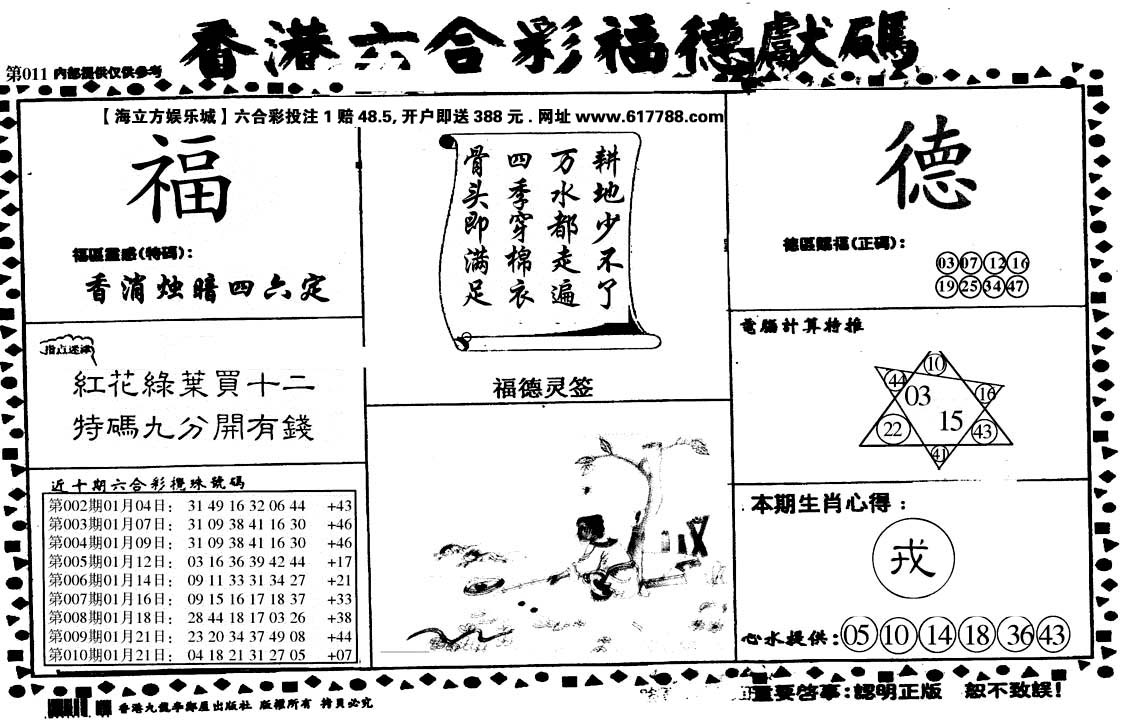 香港六合彩福德獻碼
第011 内部提供仅供参考
【海立方娱乐城】六合彩投注1赔48.5,开户即送388元.网址www.617788.com
福
福區靈感(特碼):
香消烛暗四六定
指点迷津
紅花綠葉買十二
特碼九分開有錢
近十期六合彩攪珠號碼
第002期01月04日: 31 49 16 32 06 44 +43
第003期01月07日: 31 09 38 41 16 30 +46
第004期01月09日: 31 09 38 41 16 30 +46
第005期01月12日: 03 16 36 39 42 44 +17
第006期01月14日: 09 11 33 31 34 27 +21
第007期01月16日: 09 15 16 17 18 37 +33
第008期01月18日: 28 44 18 17 03 26 +38
第009期01月21日: 23 20 34 37 49 08 +44
第010期01月21日: 04 18 21 31 27 05 +07
耕地少不了
万水都走遍
四季穿棉衣
骨头即满足
福德灵签
德
德區賜福(正碼):
03 07 12 16
19 25 34 47
電腦計算特推
10
44
03
16
15
22
43
41
本期生肖心得:
戎
心水提供:05 10 14 18 36 43
香港九龍李鄭屋出版社 版權所有 拷貝必究
重要啓事:認明正版 恕不致誤!